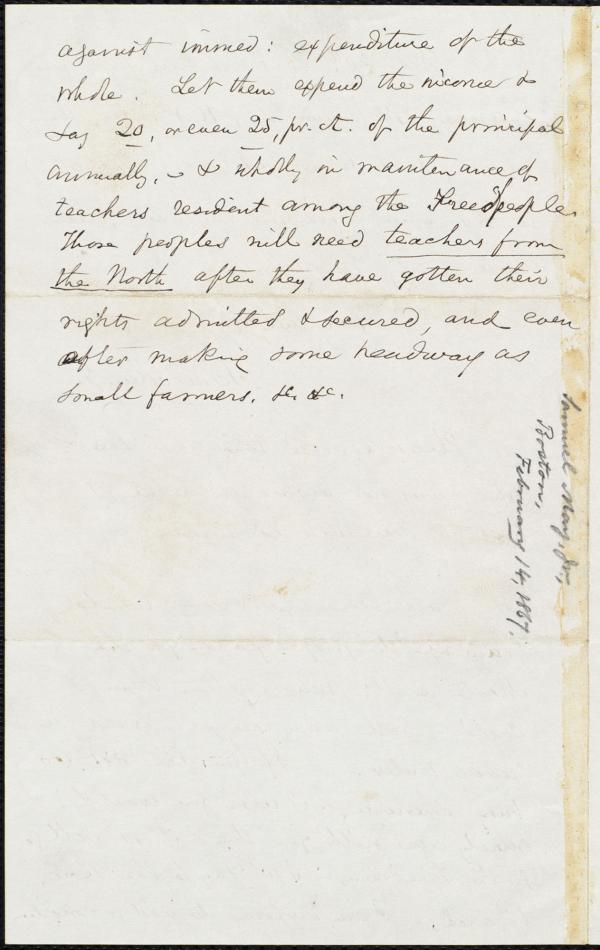 against immed: expenditure of the
whole. Let them expend the income &
say 20, or even 25, pr. ct. of the principal
annually, – & wholly in maintenance of
teachers resident among the Freedpeople.
Those peoples will need teachers from
the North after they have gotten their
rights admitted & secured, and even
after making some headway as
small farmers, &c &c.
Samuel May, Jr.,
Boston,
February 14, 1867.